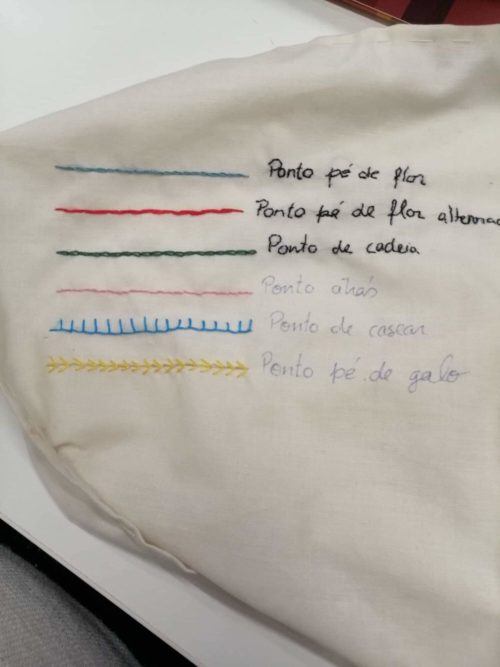 Ponto pé de flor
Ponto pé de flor alternad
Ponto de cadeia
Ponto atrás
Ponto de casear
Ponto pé de galo